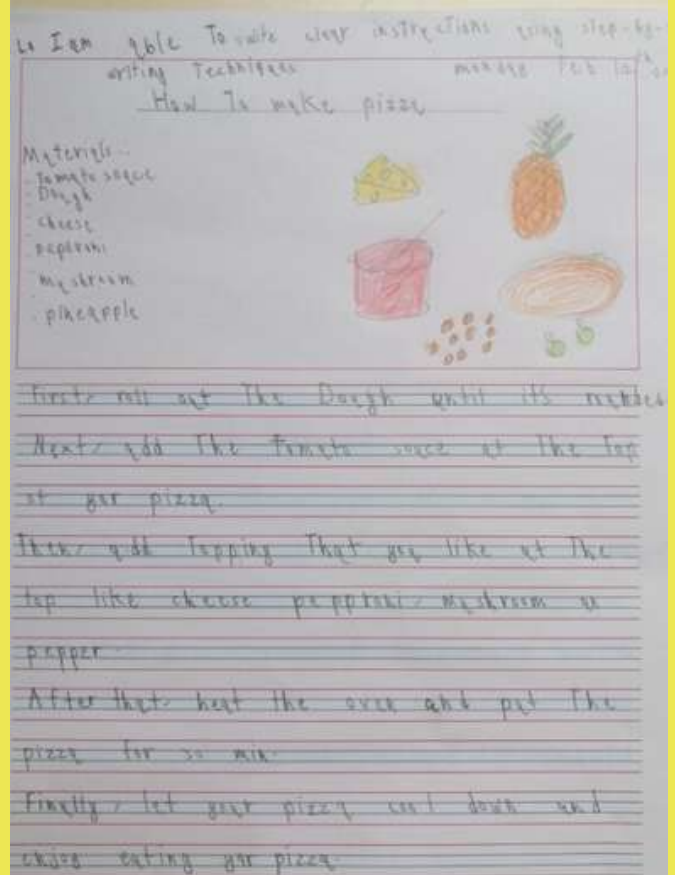 Lo I am able To write clear instructions using step-by-
writing Techniques monday Feb
How To make pizza
Materials..
- Tomato sauce
- Dough
- cheese
- peproni
- mushroom
- pineapple
First, roll out The Dough until its
Next, add The Tomato sauce at The Top
of yor pizza.
Then, add Topping That you like at The
top like cheese pepproni, mushroom or
pepper.
After that, heat the oven and put The
pizza for 30 min.
Finally, let your pizza cool down and
enjoy eating yor pizza.